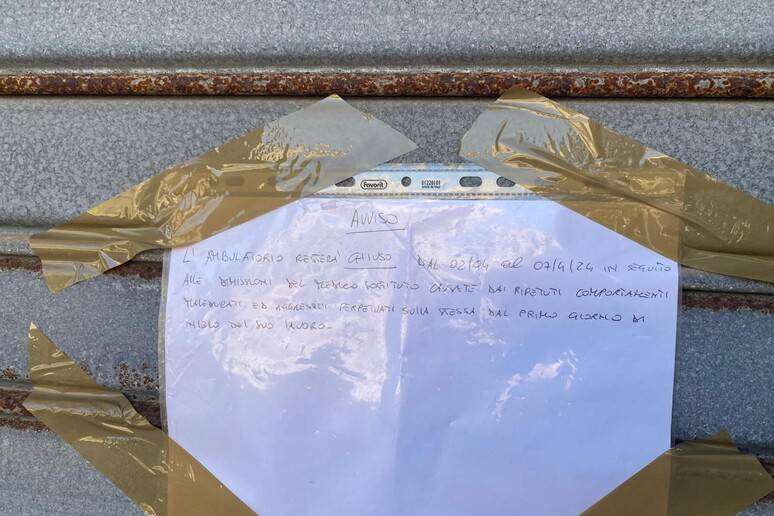 Favorit
01220101
AVVISO
L'AMBULATORIO RESTERA' CHIUSO DAL 02/04 al 07/4/24 IN SEGUITO
ALLE DIMISSIONI DEL MEDICO SOSTITUTO CAUSATE DAI RIPETUTI COMPORTAMENTI
MALEDUCATI ED AGGRESSIVI PERPETUATI SULLA STESSA DAL PRIMO GIORNO DI
INIZIO DEL SUO LAVORO.